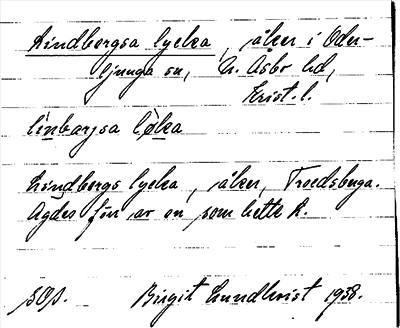 Lindbergsa lycka, åker i Oder-
ljunga sn, N. Åsbo hd,
Krist. l.
lìnbarjsa lỳka
Lindbergs lycka, åker, Troedsberga.
Ägdes förr av en som hette L.
Birgit Lundkvist 1938.